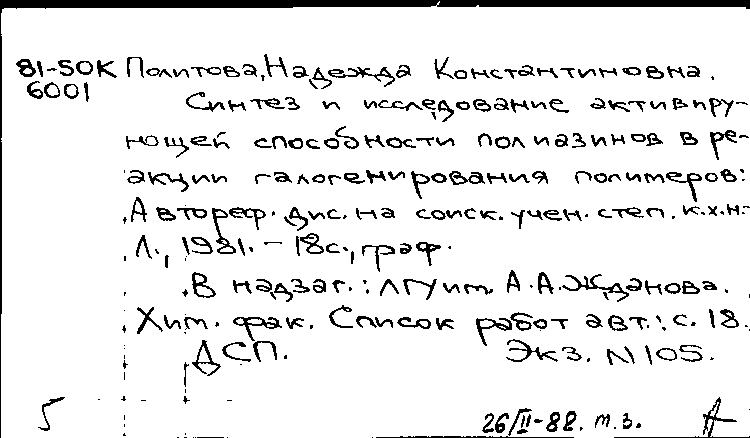 81-50К Политова, Надежда Константиновна.
6001
Синтез и исследование активиру-
ющей способности полиазинов в ре-
акции галогенирования полимеров:
Автореф. дис. на соиск. учен. степ. к.х.н.-
Л., 1981. - 18с., граф.
В надзаг.: ЛГУ им. А.А.Жданова.
Хим. фак. Список работ авт.: с. 18.
ДСП. Экз. N 105.
5 26/II-82. т.з.